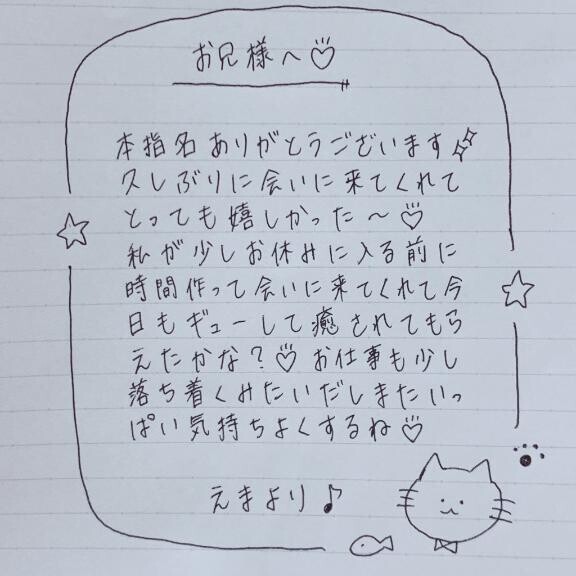 お兄様へ♡
本指名ありがとうございます✨
久しぶりに会いに来てくれて
とっても嬉しかった〜♡
私が少しお休みに入る前に
時間作って会いに来てくれて今
日もギューして癒されてもら
えたかな?♡ お仕事も少し
落ち着くみたいだしまたいっ
ぱい気持ちよくするね♡
えまより♪